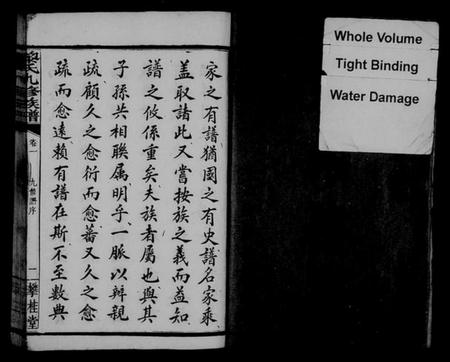 家之有譜猶國之有史譜名家乘
蓋取諸此又當按族之義而益知
譜之攸係重矣夫族者屬也與其
子孫共相聯属明乎一脈以辨親
疏顧久之愈衍而愈蕃又久之愈
疏而愈遠賴有譜在斯不至數典
氏九修族譜
卷一
九修譜序
一
攀桂堂
Whole Volume
Tight Binding
Water Damage